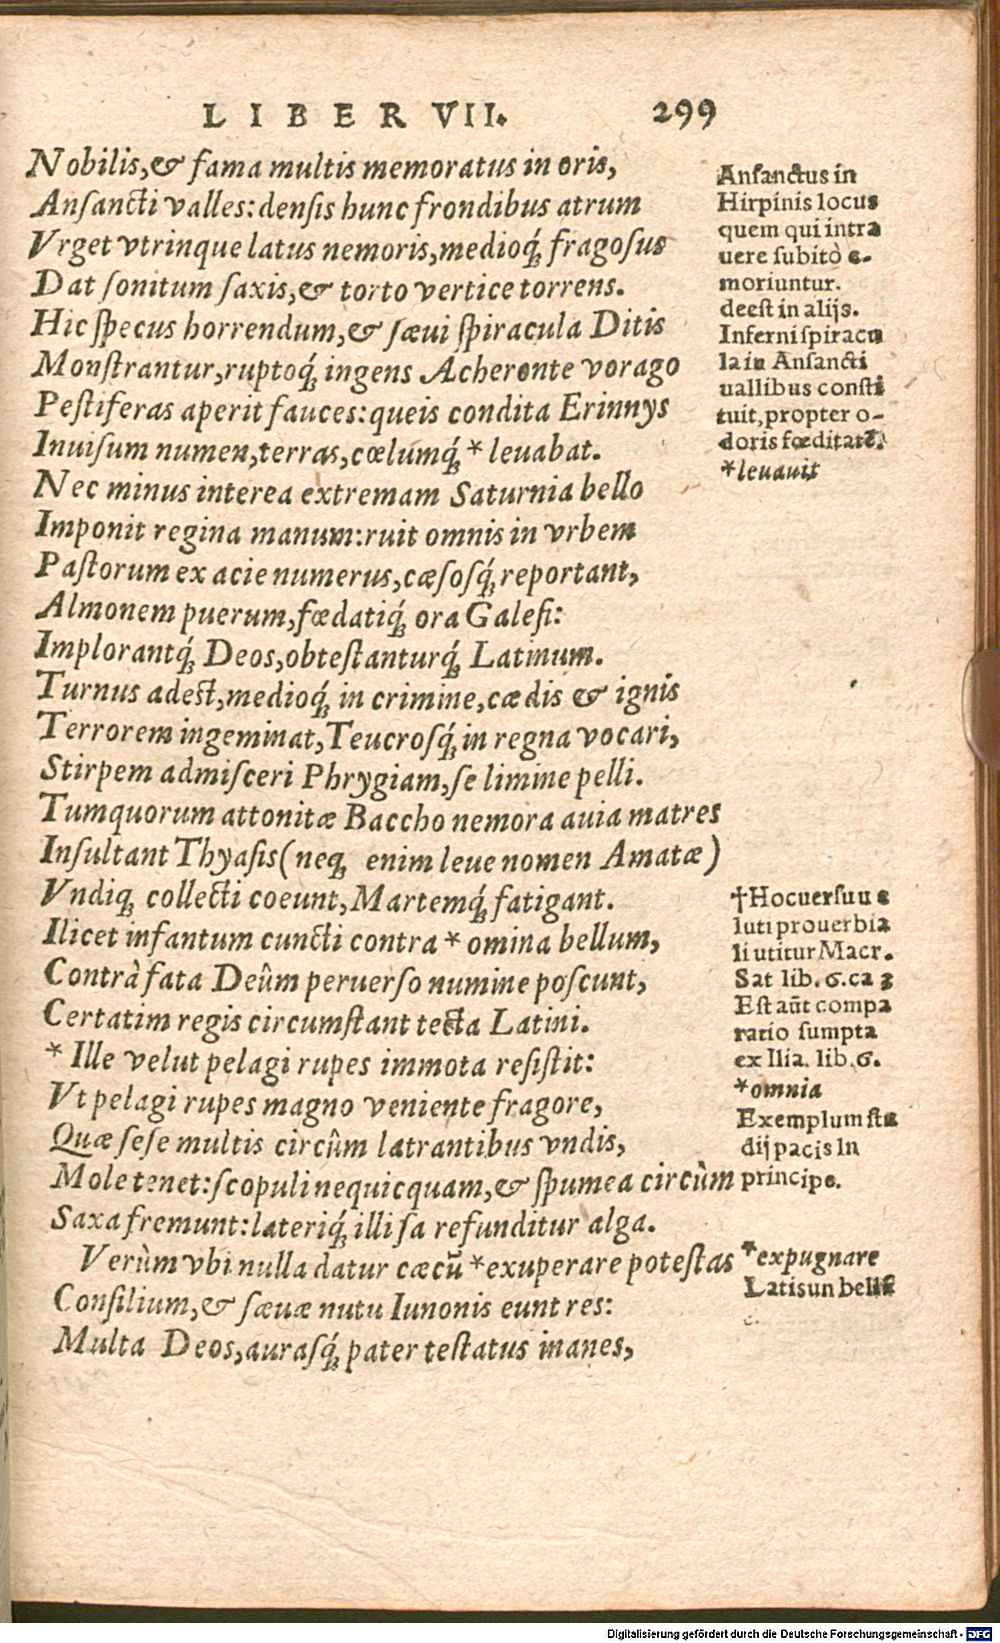 LIBER VII. 299
Nobilis,& fama multis memoratus in oris,
Anſancti valles:denſis hunc frondibus atrum
Vrget vtrinque latus nemoris,medioq́; fragoſus
Dat ſonitum ſaxis,& torto vertice torrens.
Hic ſpecus horrendum,& ſæui ſpiracula Ditis
Monſtrantur,ruptoq́; ingens Acheronte vorago
Peſtiferas aperit fauces:queis condita Erinnys
Inuiſum numen,terras,cœlumq́; * leuabat.
Nec minus interea extremam Saturnia bello
Imponit regina manum:ruit omnis in vrbem
Paſtorum ex acie numerus,cæſosq́; reportant,
Almonem puerum,fœdatiq́; ora Galeſi:
Implorantq́; Deos,obteſtanturq́; Latinum.
Turnus adeſt,medioq́; in crimine,cædis & ignis
Terrorem ingeminat,Teucroſq́; in regna vocari,
Stirpem admiſceri Phrygiam,ſe limine pelli.
Tumquorum attonitæ Baccho nemora auia matres
Inſultant Thyaſis(neq; enim leue nomen Amatæ)
Vndiq; collecti coeunt,Martemq́; fatigant.
Ilicet infantum cuncti contra * omina bellum,
Contrà fata Deûm peruerſo numine poſcunt,
Certatim regis circumſtant tecta Latini.
* Ille velut pelagi rupes immota reſiſtit:
Vt pelagi rupes magno veniente fragore,
Quæ ſeſe multis circûm latrantibus vndis,
Mole tenet:ſcopuli nequicquam,& ſpumea circùm
Saxa fremunt:lateriq́; illiſa refunditur alga.
Verùm vbi nulla datur cæcū *exuperare poteſtas
Conſilium,& ſæuæ nutu Iunonis eunt res:
Multa Deos,auraſq́; pater teſtatus inanes,
Anſanctus in
Hirpinis locus
quem qui intra
uere ſubitò e-
moriuntur.
deeſt in alijs.
Inferni ſpiracu
la in Anſancti
uallibus conſti
tuit,propter o-
doris fœditatē.
*leuauit
†Hocuerſuu e
luti prouerbia
li utitur Macr.
Sat lib. 6.ca 3
Eſt aūt compa
ratio ſumpta
ex Ilia. lib. 6.
*omnia
Exemplum ſtu
dij pacis In
principe.
*expugnare
Latis un belli
Digitalisierung gefördert durch die Deutsche Forschungsgemeinschaft - DFG